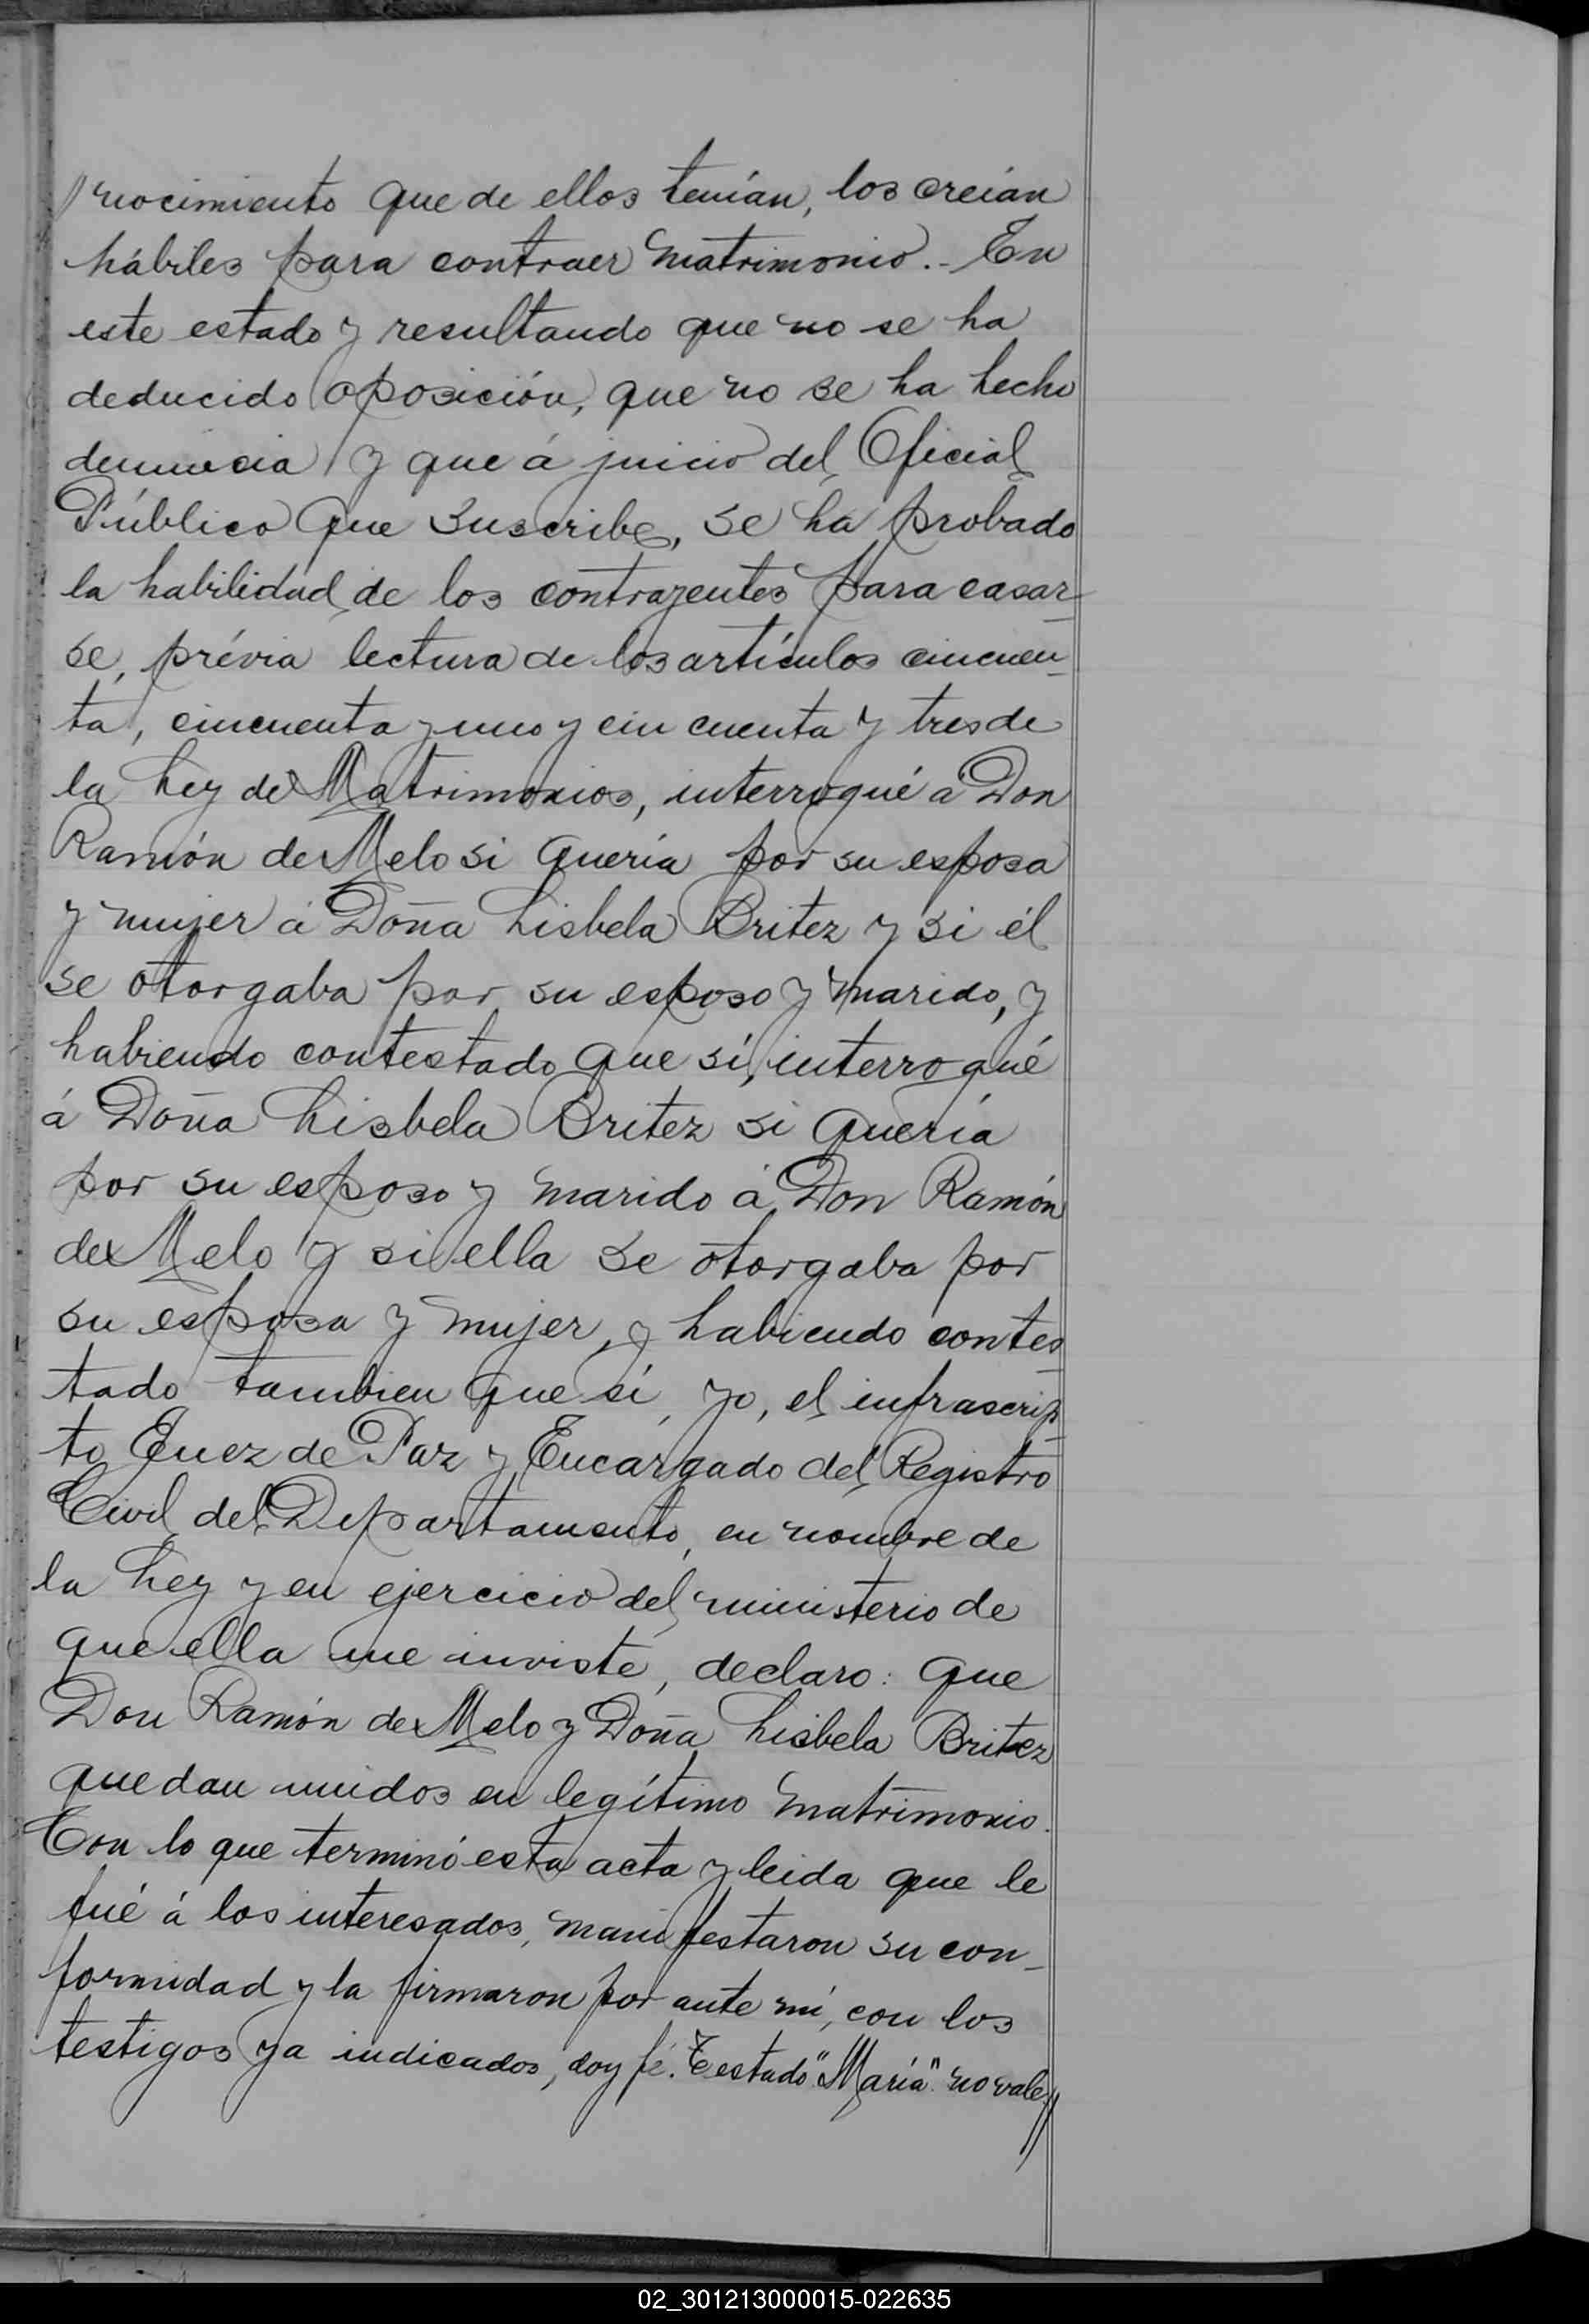 nocimiento que de ellos tenían, los creían
hábiles para contraer matrimonio.- En
este estado y resultando que no se ha
deducido oposición, que no se ha hecho
denuncia y que á juicio del Oficial
Público que suscribe, se ha probado
la habilidad de los contrayentes para casar-
se, prévia lectura de los artículos cincuen-
ta, cincuenta y uno y cincuenta y tres de
la Ley de Matrimonios, interrogué á Don
Ramón de Melo si quería por su esposa
y mujer á Doña Lisbela Britez y si él
se otorgaba por su esposo y marido, y
habiendo contestado que sí, interrogué
á Doña Lisbela Britez si quería
por su esposo y marido á Don Ramón
de Melo y si ella se otorgaba por
su esposa y mujer, y habiendo contes-
tado tambien que sí, yo, el infrascrip-
to Juez de Paz y Encargado del Registro
Civil del Departamento, en nombre de
la Ley y en ejercicio del ministerio de
que ella me inviste, declaro: que
Don Ramón de Melo y Doña Lisbela Britez
quedan unidos en legítimo matrimonio.
Con lo que terminó esta acta y leida que le
fué á los interesados, manifestaron su con-
formidad y la firmaron por ante mí, con los
testigos ya indicados, doy fé. Testado "María" no vale
02_301213000015-022635